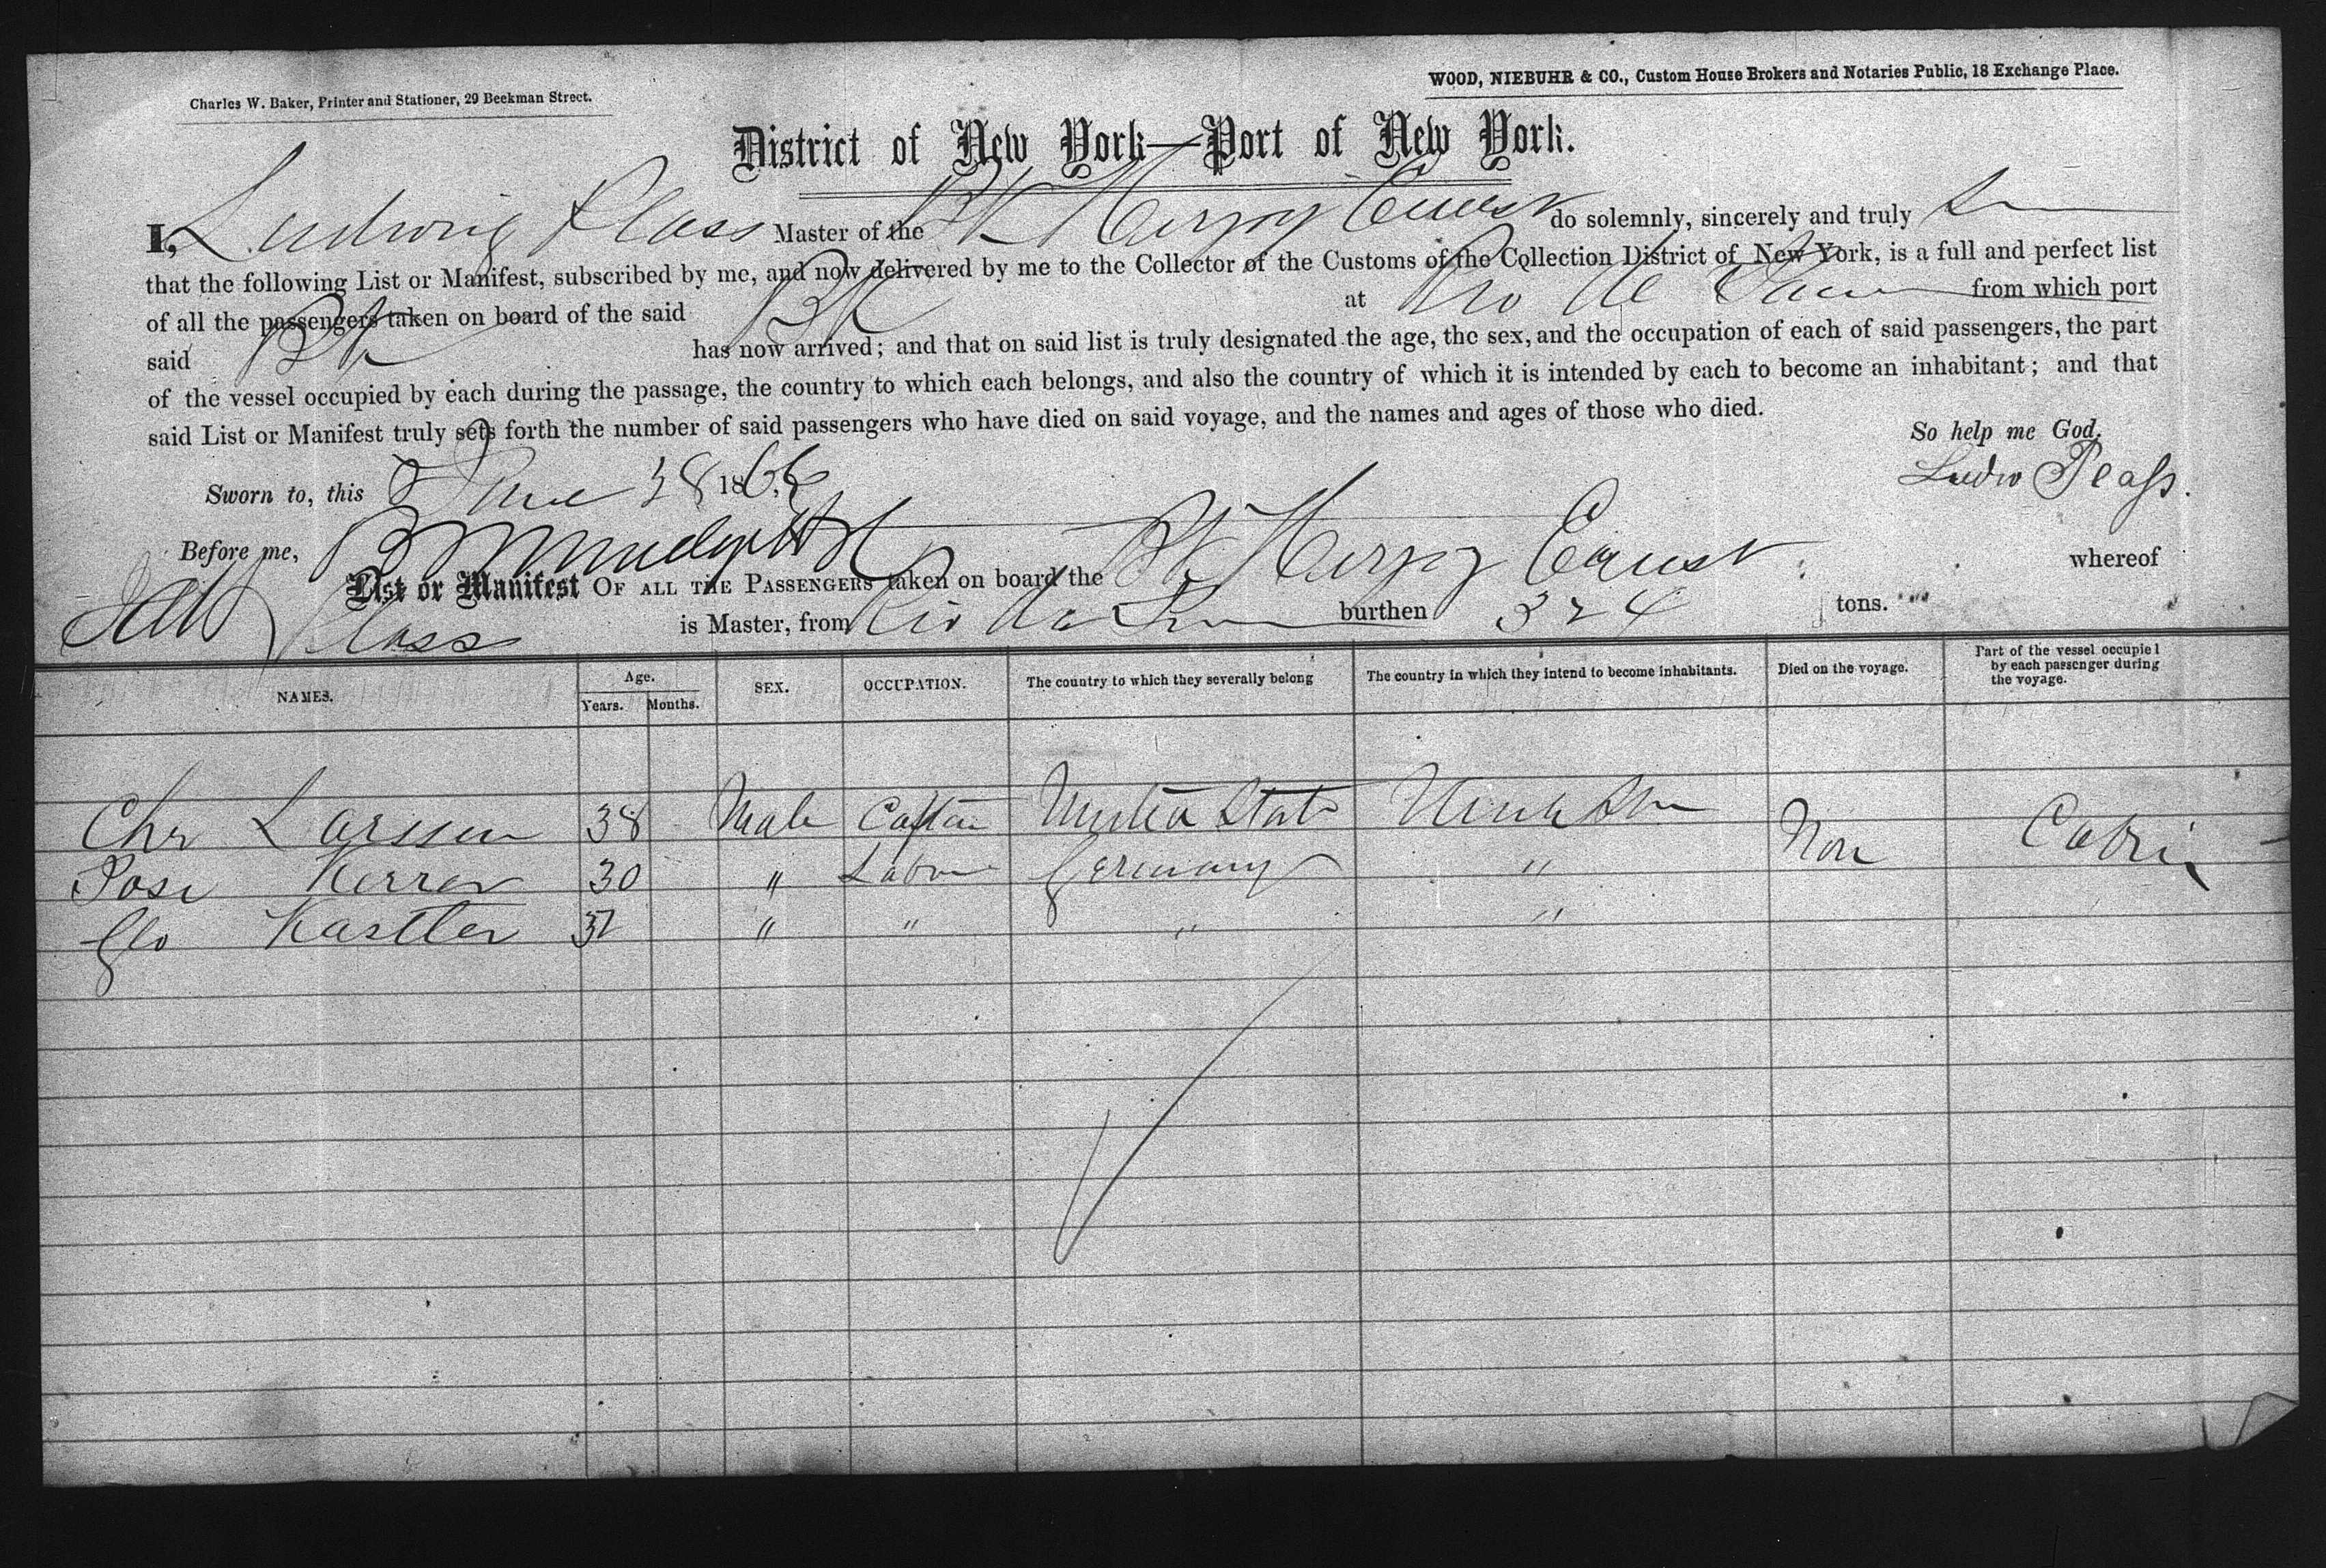 Charles W. Baker, Printer and Stationer, 29 Beekman Street.
WOOD, NIEBUHR & CO., Custom House Brokers and Notaries Public, 18 Exchange Place.
District of New York—Port of New York.
I, Ludwig Plass Master of the Bk Herzog Ernst do solemnly, sincerely and truly
that the following List or Manifest, subscribed by me, and now delivered by me to the Collector of the Customs of the Collection District of New York, is a full and perfect list
of all the passengers taken on board of the said Bk at Rio de from which port
said Bk has now arrived; and that on said list is truly designated the age, the sex, and the occupation of each of said passengers, the part
of the vessel occupied by each during the passage, the country to which each belongs, and also the country of which it is intended by each to become an inhabitant; and that
said List or Manifest truly sets forth the number of said passengers who have died on said voyage, and the names and ages of those who died.
So help me God.
Sworn to, this June 18
Before me,
List or Manifest OF ALL THE PASSENGERS taken on board the Bk Herzog Ernst whereof
Plass is Master, from Rio burthen 324 tons.
NAMES. Age. Years. Months. SEX. OCCUPATION. The country to which they severally belong The country in which they intend to become inhabitants. Died on the voyage. Part of the vessel occupied by each passenger during the voyage.
Chr Larssen 38 Male United States Non
30 " Germany "
Kastler " " " "